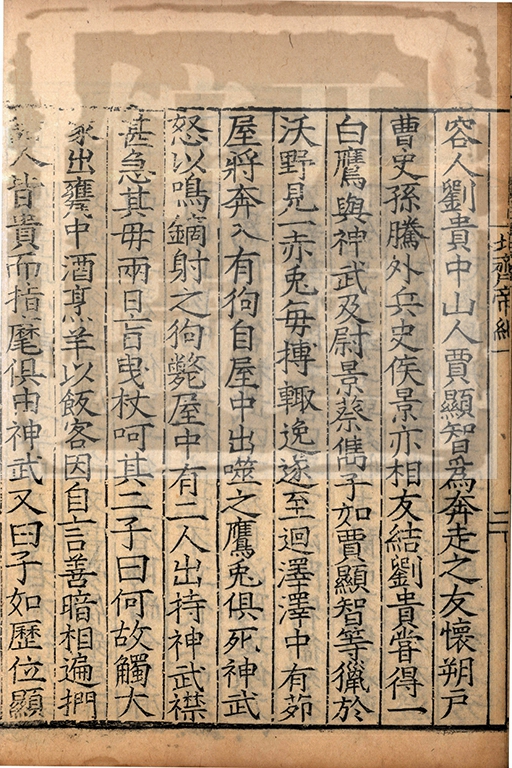 容人劉貴中山人賈顯智為奔走之友懷朔戸
曹史孫騰外兵史侯景亦相友結劉貴嘗得一
白鷹與神武及尉景蔡儁子如賈顯智等獵於
沃野見一赤兎每搏輒逸遂至迥澤澤中有茆
屋將奔入有狗自屋中出噬之鷹兎俱死神武
怒以鳴鏑射之狗斃屋中有二人出持神武襟
甚急其母兩目盲曳杖呵其二子曰何故觸大
家出甕中酒烹羊以飯客因自言善暗相遍捫
人皆貴而指麾俱由神武又曰子如歷位顯
北齊帝紀一
二